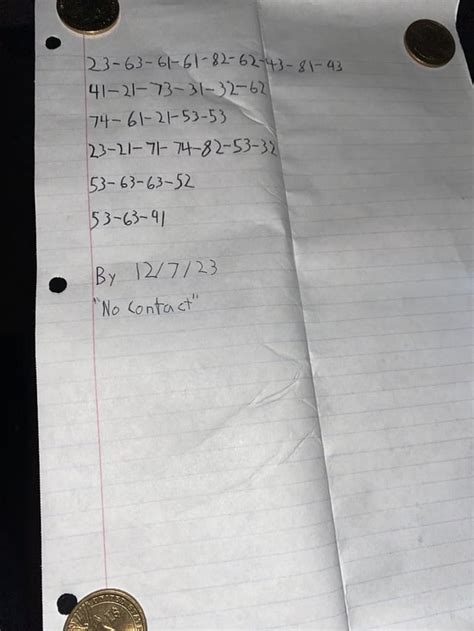 23-63-61-61-82-62-43-81-93
41-21-73-31-32-62
74-61-21-53-53
23-21-71-74-82-53-32
53-63-63-52
53-63-91
By 12/7/23
"No Contact"